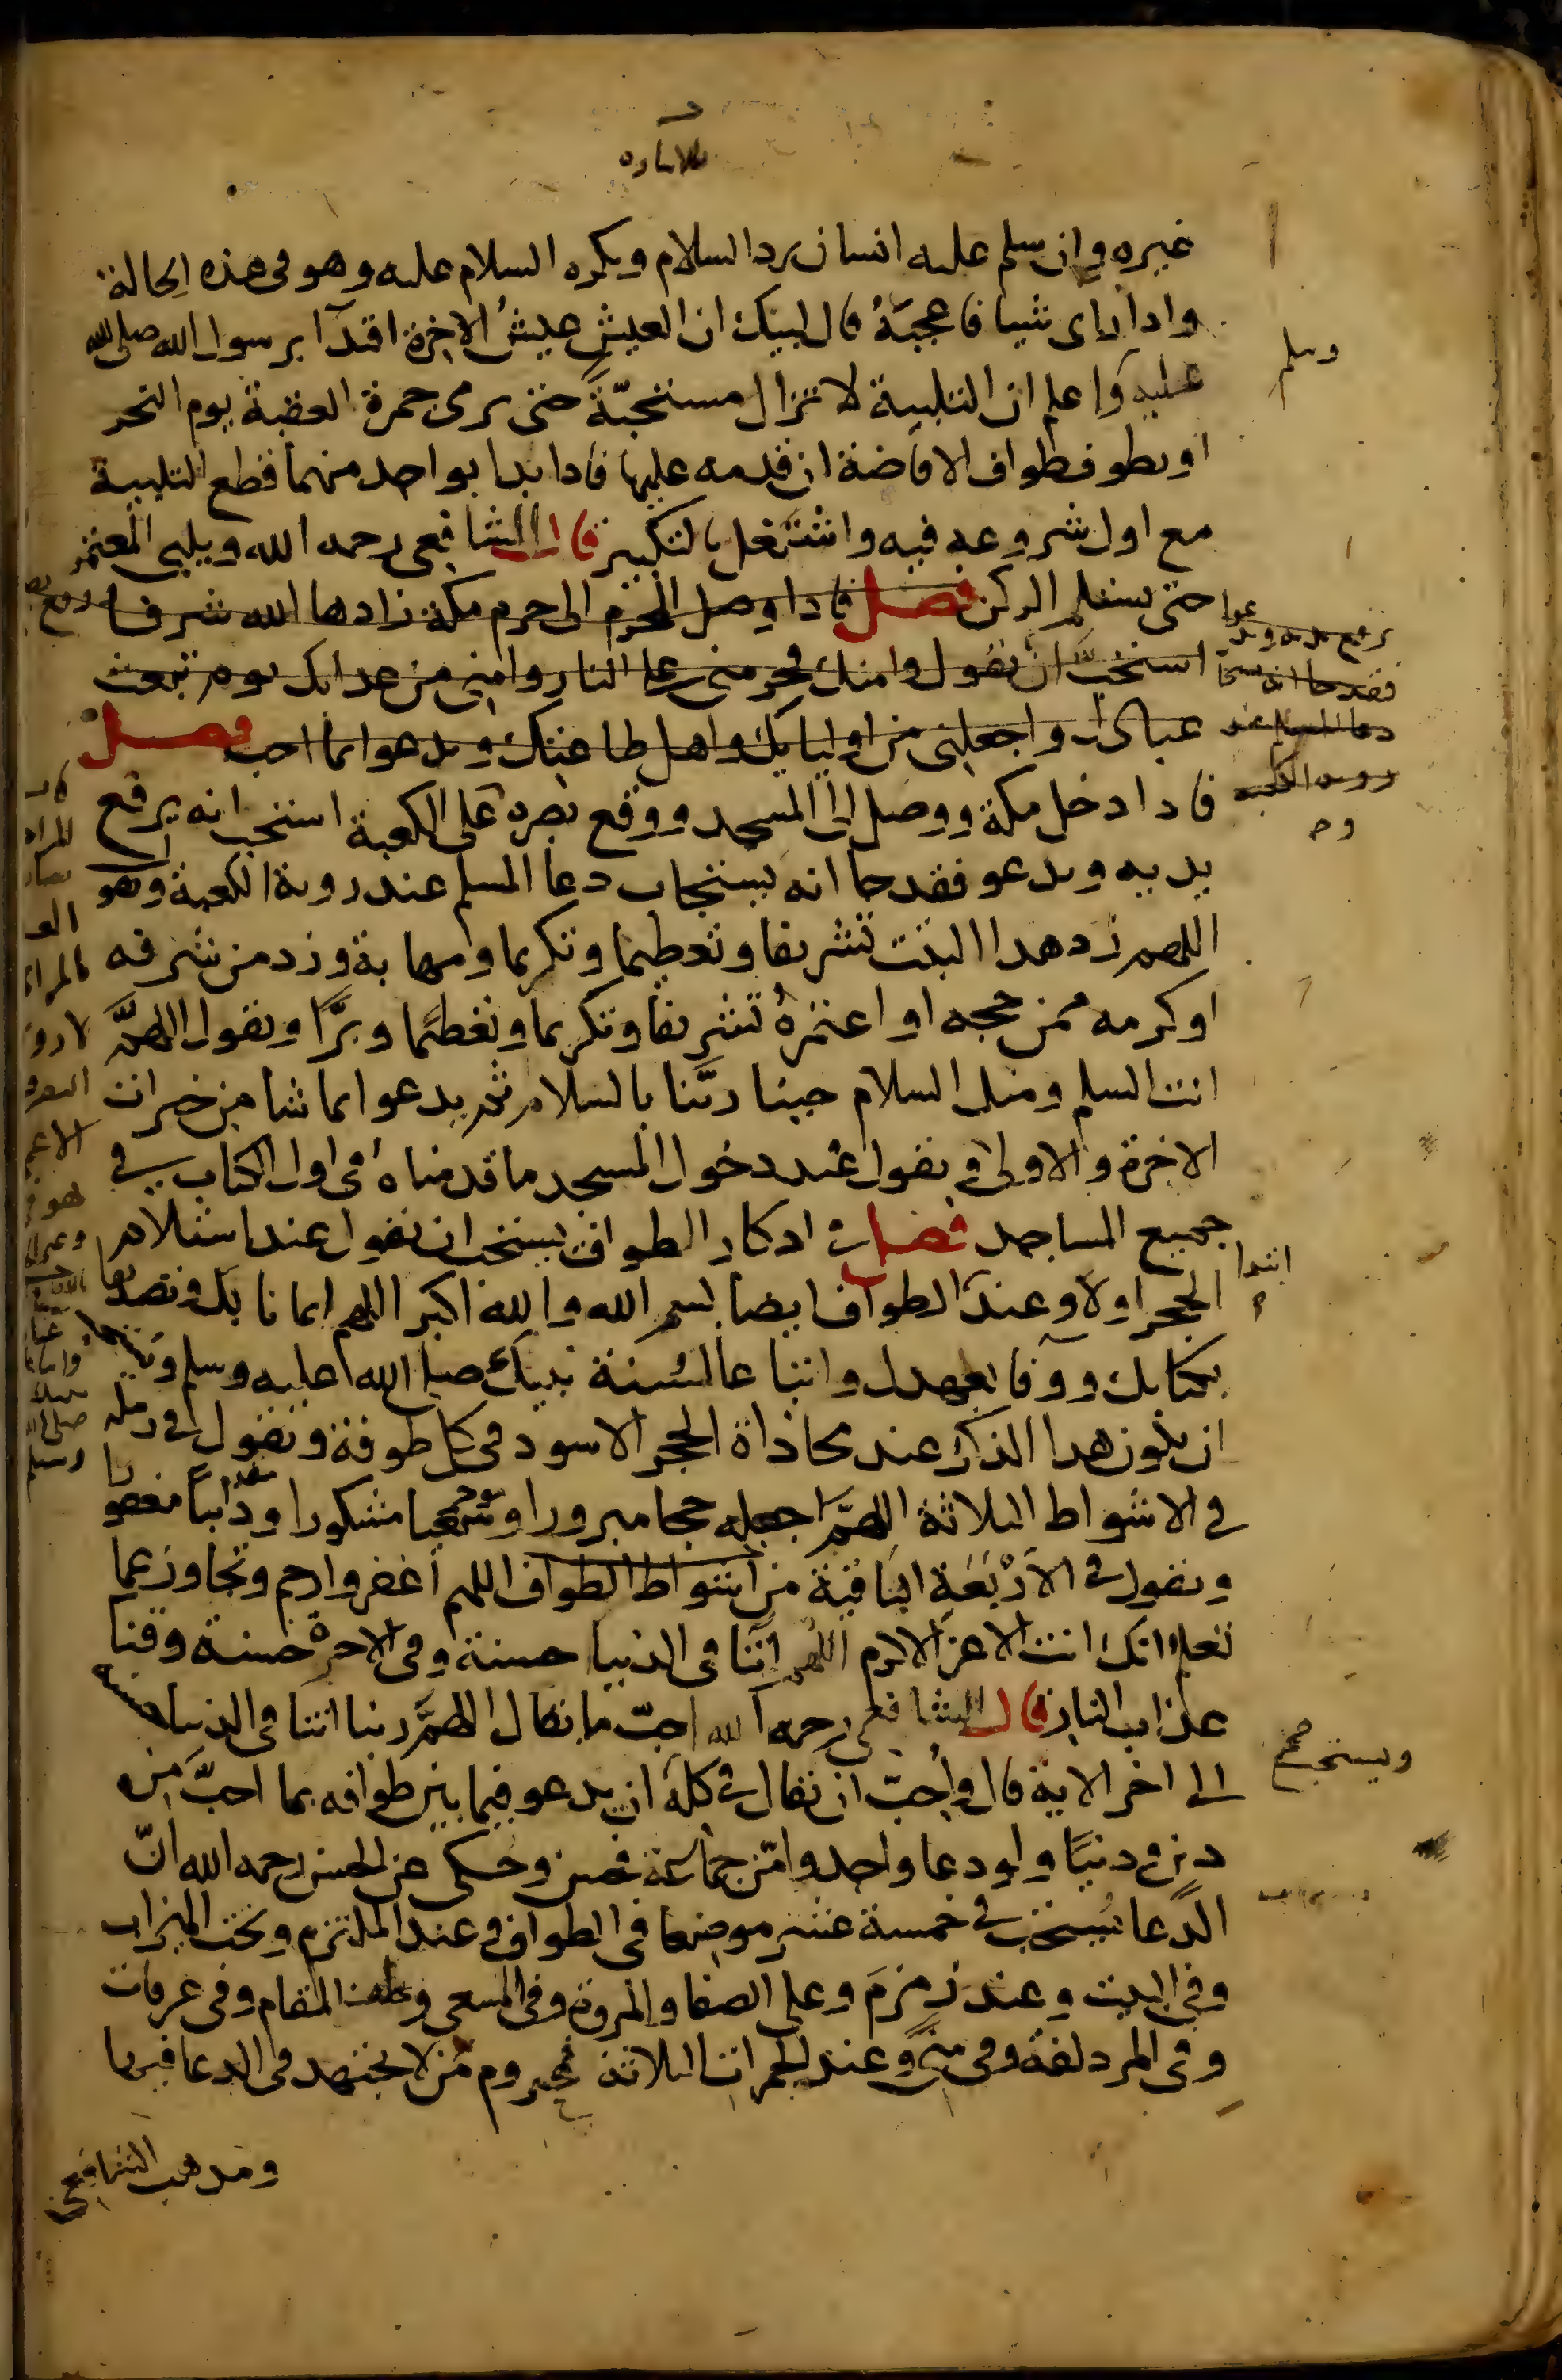 غيره وان سلم عليه انسان رد السلام ويكره السلام عليه وهو فى هذه الحالة
واذا راى شيا فاعجبَهُ قال لبيك ان العيش عيشُ الاخرة اقتدآ برسول الله صلى الله
وسلم
عليه واعلم ان التلبية لا تزال مستحبّةً حتى يرمى جمرة العقبة يوم النحر
او يطوف طواف الافاضة ان قدمه عليها فاذا بدا بواحد منهما قطع التلبية
مع اول شروعه فيه واشتغل بالتكبير قال الشافعى رحمه الله ويلبى المعتمر
حتى يستلم الركن فصل فاذا وصل المحرم الى حرم مكة زادها الله شرفا
استحب ان يقول وامنك فحرمنى على النار وامنى من عذابك يوم تبعث
عبادك واجعلنى من اوليايك واهل طاعتك ويدعوا بما احب فصل
فاذا دخل مكة ووصل الى المسجد ووقع بصره على الكعبة استحب انه يرفع
يديه ويدعو فقد جا انه يستجاب دعا المسلم عند روية الكعبة وهو
اللهم زد هذا البيت تشريفا وتعظيما وتكريما ومهابة وزد من شرفه
او كرمه ممن حجه او اعتمرهُ تشريفا وتكريما وتعظيما وبرًّا ويقول اللهمَّ
انت السلم ومنك السلام حينا ربّنا بالسلام ثم يدعوا بما شا من خيرات
الاخرة والاولى ويقول عند دخول المسجد ما قدمناهُ فى اول الكتاب فى
جميع المساجد فصل فى اذكار الطواف يستحب ان يقول عند استلام
ابتدا
الحجر اولا وعند الطواف ايضا بسم الله والله اكبر اللهم ايمانا بك وتصديقا
بكتابك ووفا بعهدك واتباعا لسُنة نبيك صلى الله عليه وسلم
ان يكون هذا الذكر عند محاذاة الحجر الاسود فى كل طوفة ويقول فى رمله
فى الاشواط الثلاثة اللهمّ اجعله حجا مبرورا وسعيا مشكورا وذنبا مغفورا
ويقول فى الاَرْبَعَةِ الباقية من اشواط الطواف اللهم اغفر وارحم وتجاوز عما
تعلم انك انت الاعز الاكرم اللهم اتنا فى الدنيا حسنة وفى الاخرة حسنة وقنا
عذاب النار قال الشافعى رحمه الله احبّ ما يقال اللهمَّ ربنا اتنا فى الدنيا حسنة
ويستحب
الى اخر الاية قال واُحبّ ان يقال فى كله ان يدعو فيما بين طوافه بما احبَّ من
دين ودنيًا ولو دعا واحد وامّن جماعة فحسن وحكى عن الحسن رحمه الله انّ
الدّعا يُستجاب فى خمسة عشر موضعا فى الطواف وعند الملتزم وتحت الميزاب
وفى البيت وعند زمزمَ وعلى الصفا والمروة وفى المسعى وخلف المقام وفى عرفات
وفى المزدلفة وفى منى وعند الجمرات الثلاثة فمحروم من لا يجتهد فى الدعا فيها
ومذهب الشافعى